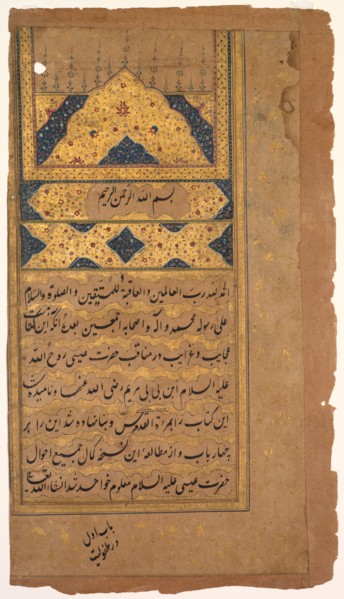 بسم الله الرحمن الرحیم
الحمد لله رب العالمین والعاقبة للمتقین والصلوة والسلام
علی رسوله محمد وآله واصحابه اجمعین بعد آنکه این کلمات
عجایب وغرایب در مناقب حضرت عیسی روح الله
علیه السلام ابن بی بی مریم رضی الله عنها ونامیده
این کتاب القدوس وبنا نهاده شد این را بر
چهار باب واز مطالعه این نسخه کمال جمیع احوال
حضرت عیسی علیه السلام معلوم خواهد شد انشاء الله تعالی
باب اول
در طفولیت